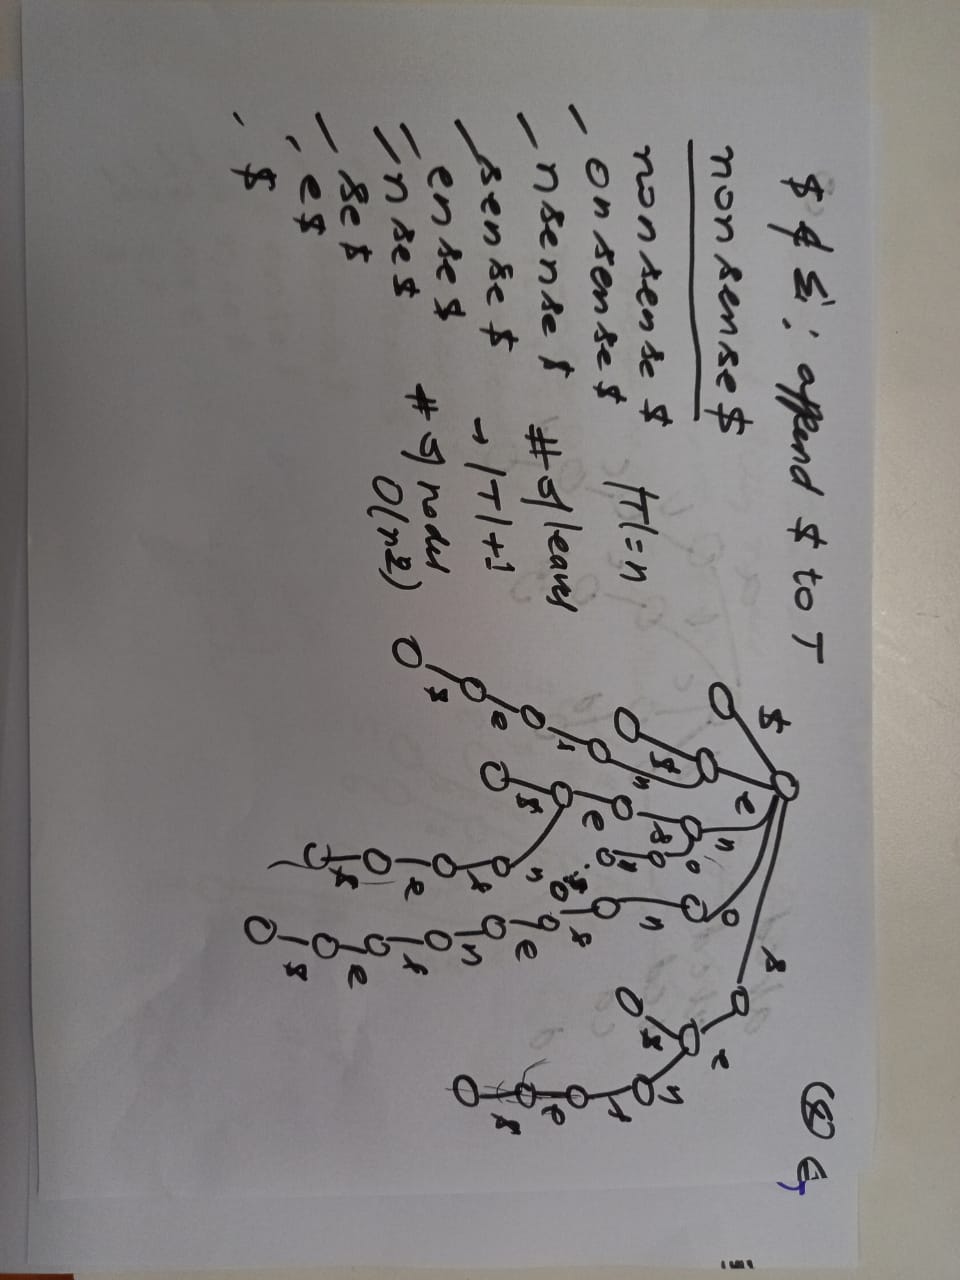 $ ∉ Σ ; append $ to T
nonsense $
nonsense $
- onsense $
- nsense $
- sense $
ense $
= nse $
- se $
- e $
- $
|T| = n
# of leaves
→ |T| + 1
# of nodes
O(n²)
$
e
n
o
s
$
n
s
e
$
o
n
s
e
$
n
s
e
$
n
s
e
n
s
e
$
e
$
n
s
e
$